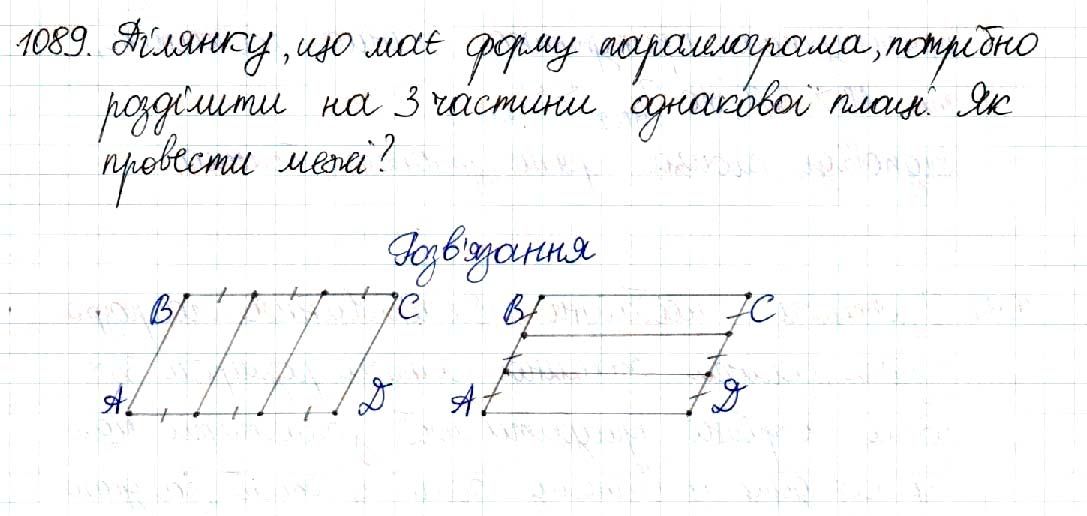 1089. Ділянку, що має форму паралелограма, потрібно
розділити на 3 частини однакової площі. Як
провести межі?
Розв'язання
B C B C
A D A D